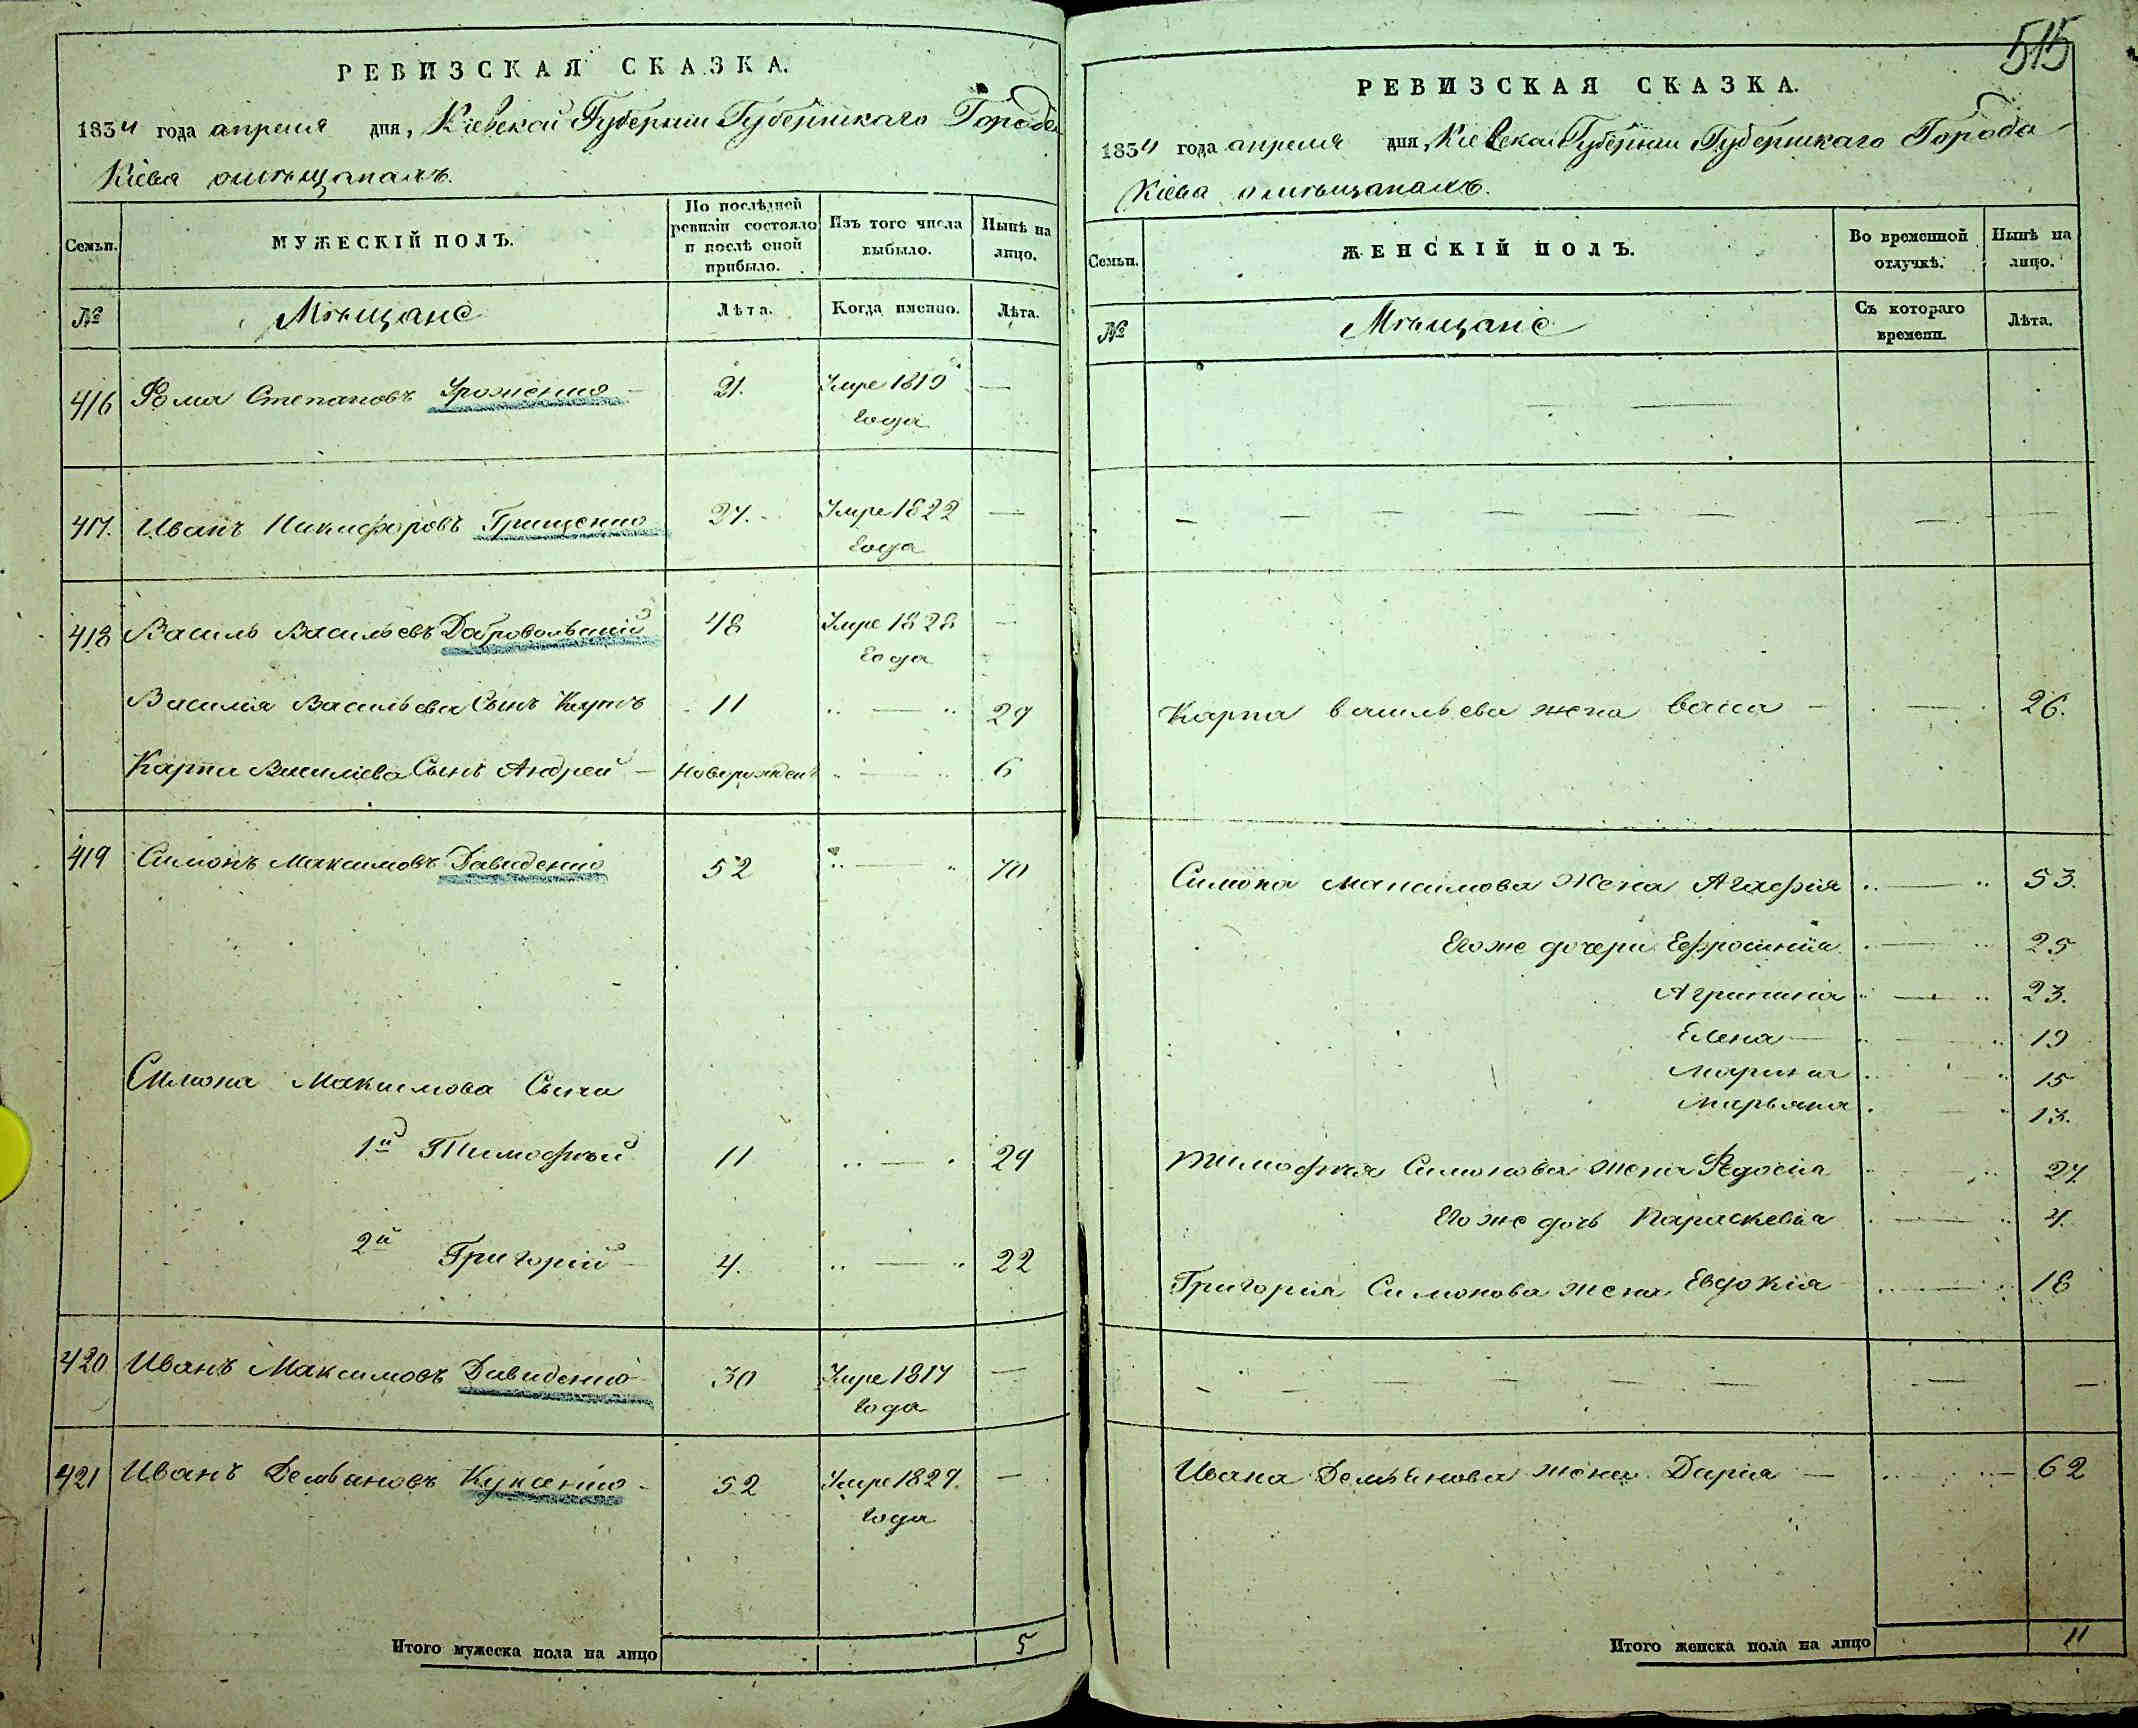 РЕВИЗСКАЯ СКАЗКА.
1834 года апреля дня, Кіевской Губерніи Губернскаго Города
Кіева о мѣщанахъ.
Семьи.
МУЖЕСКІЙ ПОЛЪ.
По послѣдней ревизіи состояло и послѣ оной прибыло.
Изъ того числа выбыло.
Нынѣ на лицо.
№
Мѣщане
Лѣта.
Когда имянно.
Лѣта.
416 Фома Степановъ 21. Умре 1819 —
года
417. Иванъ Никифоровъ Грищенко 27. Умре 1822 —
года
418 Василь Васильевъ Добровольский 48 Умре 1828 —
года
Василія Васильева Сынъ Карпъ 11 " — " 29
Карпа Василіева Сынъ Андрей — Новорожден " — " 6
419 Симонъ Максимовъ Давиденко 52 " — " 70
Симона Максимова Сыни
1й Тимофѣй 11 " — " 29
2й Григорій 4. " — " 22
420 Иванъ Максимовъ Давиденко 30 Умре 1817 —
года
421 Иванъ Демьяновъ Куканко 52 Умре 1829. —
года
Итого мужеска пола на лицо 5
515
РЕВИЗСКАЯ СКАЗКА.
1834 года апреля дня, Кіевской Губерніи Губернскаго Города
Кіева о мѣщанахъ.
Семьи.
ЖЕНСКІЙ ПОЛЪ.
Во временной отлучкѣ.
Нынѣ на лицо.
№
Мѣщане
Съ котораго времени.
Лѣта.
Карпа Васильева жена Васса — 26.
Симона Максимова Жена Агафія " — " 53.
Его же дочери Ефросинія " — " 25
Агрипина " — " 23.
Елена — " " 19
Марина " " 15
Марьяна " " 13.
Тимофѣя Симонова жена Федосіа " " 27.
Его же дочь Параскевіа " — " 4.
Григорія Симонова жена Евдокія " — " 18
Ивана Демьянова жена Дарія — " — 62
Итого женска пола на лицо 11